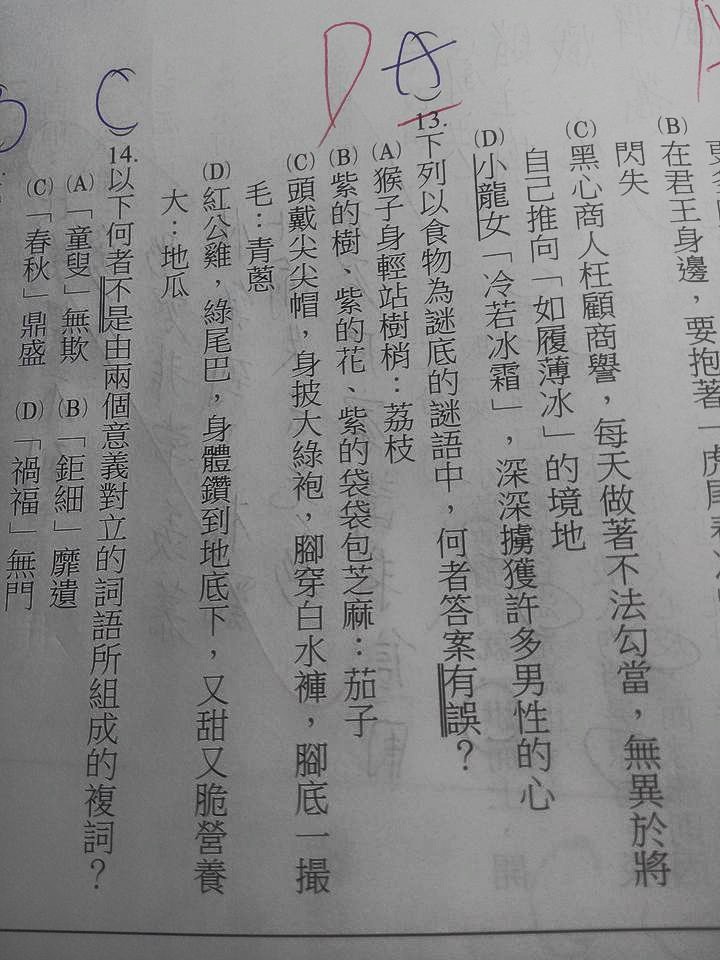 (B)在君王身邊，要抱著「虎尾春冰
閃失
(C)黑心商人枉顧商譽，每天做著不法勾當，無異於將
自己推向「如履薄冰」的境地
(D)小龍女「冷若冰霜」，深深擄獲許多男性的心
D A )13.下列以食物為謎底的謎語中，何者答案有誤？
(A)猴子身輕站樹梢：荔枝
(B)紫的樹、紫的花、紫的袋袋包芝麻：茄子
(C)頭戴尖尖帽，身披大綠袍，腳穿白水褲，腳底一撮
毛：青蔥
(D)紅公雞，綠尾巴，身體鑽到地底下，又甜又脆營養
大：地瓜
C )14.以下何者不是由兩個意義對立的詞語所組成的複詞？
(A)「童叟」無欺 (B)「鉅細」靡遺
(C)「春秋」鼎盛 (D)「禍福」無門